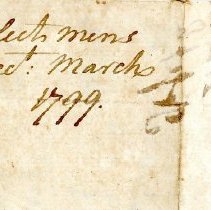 lect mens
ect: March
1799.